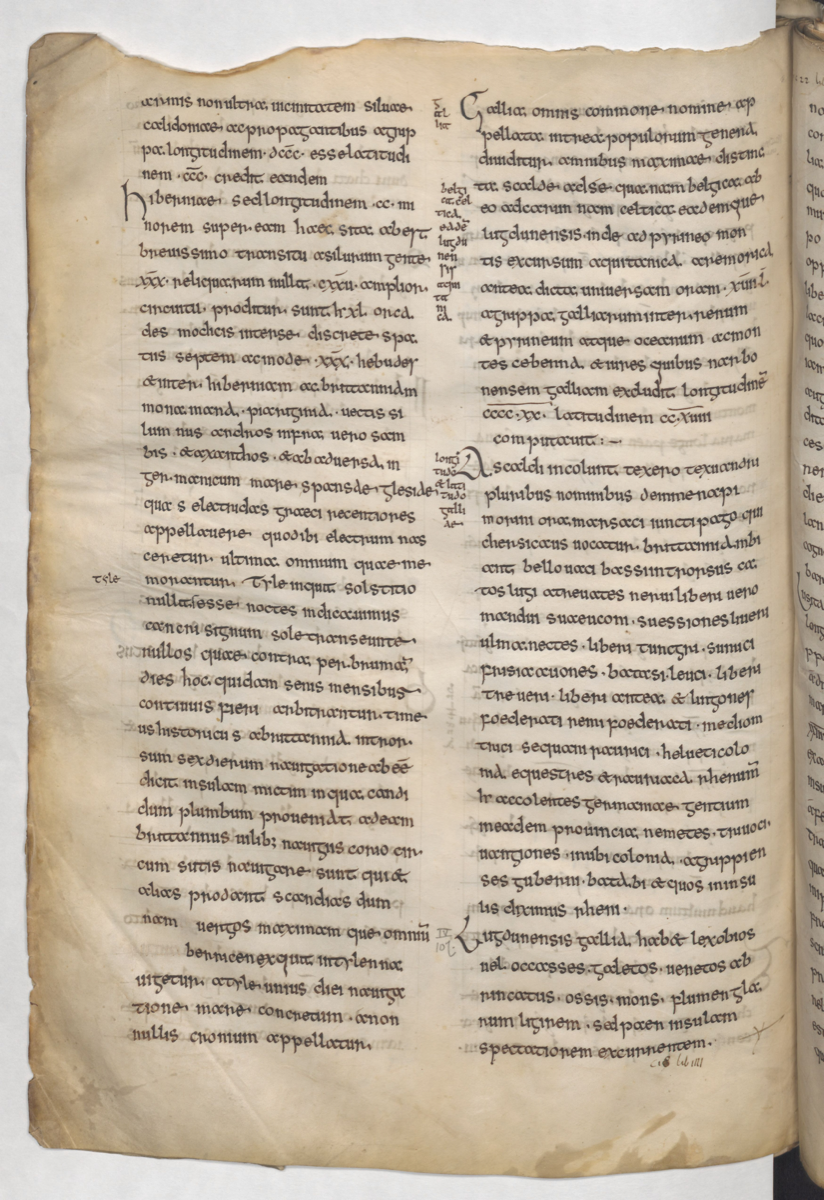 armis non ultra uicinitatem siluae
calidoniae ac propagantibus agrip
pa longitudinem · dccc · esse latitudi
nem · ccc · credit eandem
hiberniae sed longitudinem · cc · mi
norem super eam haec sita abest
breuissimo transitu a silurum gente
xxx · reliquarum nulla · cxxu · amplior
circuitu proditur sunt h xl · orca
des modicis intense discrete spa
tiis septem acmode · xxx · hebudes
& inter hiberniam ac brittanniam
mona mona · riarigina · uectis si
lum nus andros infra uero sam
bis · & axanthos · & ab aduersa in
germanicum mare sparsae glesidae
quas electridas graeci recentiores
appellauere quod ibi electrum nas
ceretur ultima omnium quae me
tyle
morantur tyle in qua solstitio
nullas esse noctes indicauimus
cancri signum sole transeunte
nullos quae contra per bruma
dies hoc quidam senis mensibus
continuis fieri arbitrantur time
us historicus a brittannia intror
sum sex dierum nauigatione abee
dicit insulam mictim in qua candi
dum plumbum proueniat ad eam
brittannius uilib; nauigiis corio cir
cum sutis nauigare sunt qui &
alias prodant scandias dum
nam uergos maximam que omniu
bernicen ex qua in tylen na
uigetur a tyle unius diei nauiga
tione mare concretum a non
nullis cronium appellatur.
gal
lia
Gallia omnis commone nomine ap
pellata in trea populorum genera
diuiditur amnibus maximae distinc
belgi
ca cel
tica
eade
lugdu
nen
sis
aqui
ta
ni
ca
ta scalde aclse quanam belgica ab
eo ad carum nam celtica eademque
lugdunensis inde ad pyrineo mon
tis excursum aquitanica aremorica
antea dicta uniuersam oram · xuiii l ·
agrippa galliarum inter renum
& pyrineum atque oceanum ac mon
tes cebenna & iures quibus narbo
nensem galliam excludit longitudine
cccc · xx · latitudinem cc · xuiii
computauit : ~
longi
tudo
& lati
tudo
galli
ae
A scaldi incolunt texero texuandri
pluribus nominibus dein menapi
morini ora marsaci iuncti pago qui
chersicaus uocatur brittannia mbi
ani bellouaci bassi introrsus ca
tos lugi atreuates nerui liberi uero
mandui suaeuconi · suessiones liueri
ulmanectes · liberi tungri · sunuci
frisiauones · batasi · leuci · liberi
treueri · liberi antea & lingones
foederati remi foederati · mediom
trici sequani raurici · heluetii colo
nia equestres & rauriaca rhenum
h accolentes germaniae gentium
in eadem prouincia nemetes · triuoci ·
uangiones · inubi colonia · agrippien
ses guberni · bata bi & quos in insu
lis diximus rheni ·
Lugdunensis gallia hab& lexobios
uel occasses · galetos · uenetos ab
rincatus · ossis · mons · flumen gla
rum ligirem · sed paen insulam
spectationem excurrentem ·